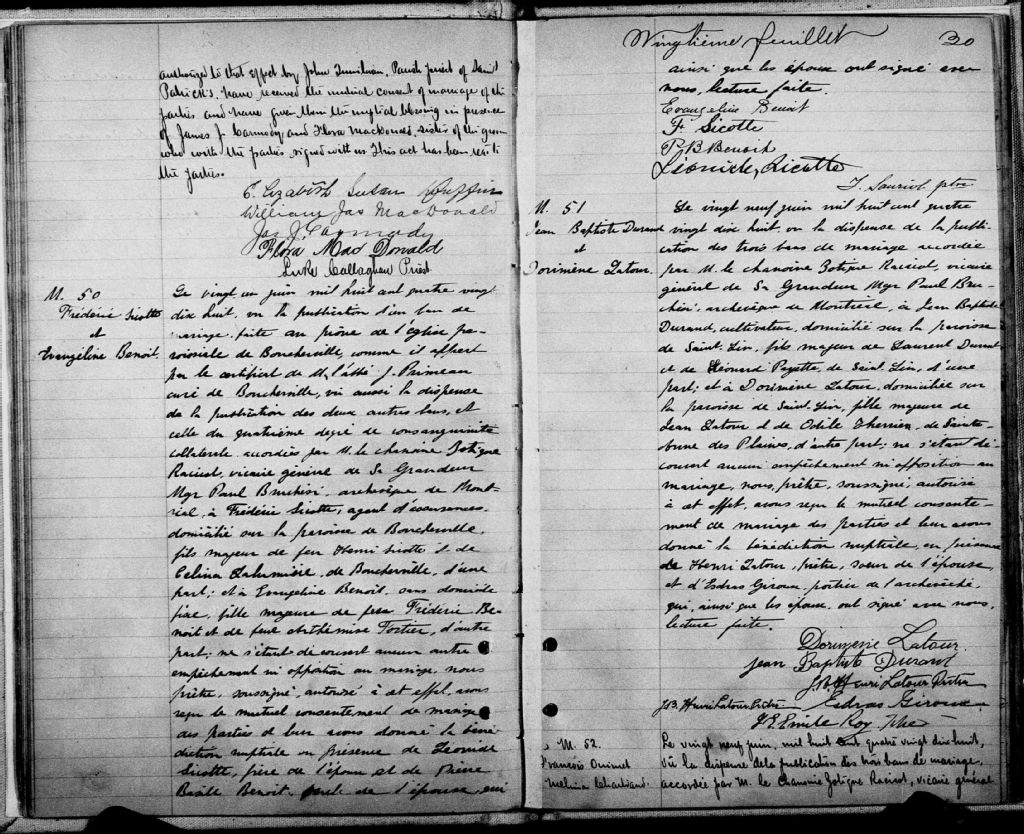 authorized to that effect by John Parish priest of Saint
Patrick's, have received the mutual consent of marriage of the
parties and have given them the nuptial blessing in presence
of James J. Carmody and Flora MacDonald, sister of the groom
who with the parties signed with us. This act has been read to
the parties.
Elizabeth Susan
William Jas MacDonald
Jas J. Carmody
Flora Mac Donald
Luke Callaghan Priest
M. 50
Frédéric Sicotte
et
Evangéline Benoit.
Le vingt un juin mil huit cent quatre vingt
dix huit, vu la publication d'un ban de
mariage, faite au prône de l'église pa-
roissiale de Boucherville, comme il appert
par le certificat de M. l'abbé J. Primeau
curé de Boucherville, vu aussi la dispense
de la publication des deux autres bans, et
celle du quatrième degré de consanguinité
collatérale accordées par M. le chanoine Zotique
Racicot, vicaire général de Sa Grandeur
Mgr Paul Bruchési, archevêque de Mont-
réal, à Frédéric Sicotte, agent d'assurances,
domicilié sur la paroisse de Boucherville,
fils majeur de feu Henri Sicotte et de
Célina Labumière, de Boucherville, d'une
part; et à Evangéline Benoit, sans domicile
fixe, fille majeure de feu Frédéric Be-
noit et de feue Arthémise Fortier, d'autre
part; ne s'étant découvert aucun autre
empêchement ni opposition au mariage, nous
prêtre, soussigné, autorisé à cet effet, avons
reçu le mutuel consentement de mariage
des parties et leur avons donné la béné-
diction nuptiale en présence de Léonide
Sicotte, frère de l'époux et de Pierre
Basile Benoit, de l'épouse, qui
Vingtième feuillet
20
ainsi que les époux ont signé avec
nous, lecture faite.
Evangéline Benoit
F. Sicotte
P. B. Benoit
Léonide Sicotte
J. Sauriol ptre
M. 51
Jean Baptiste Durand
et
Dorimène Latour.
Le vingt neuf juin mil huit cent quatre
vingt dix huit, vu la dispense de la publi-
cation des trois bans de mariage accordée
par M. le chanoine Zotique Racicot, vicaire
général de Sa Grandeur Mgr Paul Bru-
chési, archevêque de Montréal, à Jean Baptiste
Durand, cultivateur, domicilié sur la paroisse
de Saint-Lin, fils majeur de Laurent Durand
et de Léonard Payette, de Saint-Lin, d'une
part; et à Dorimène Latour, domiciliée sur
la paroisse de Saint-Lin, fille majeure de
Jean Latour et de Odile Therrien, de Sainte-
Anne des Plaines, d'autre part; ne s'étant dé-
couvert aucun empêchement ni opposition au
mariage, nous, prêtre, soussigné, autorisé
à cet effet, avons reçu le mutuel consente-
ment de mariage des parties et leur avons
donné la bénédiction nuptiale, en présence
de Henri Latour, prêtre, de l'épouse
et d'Esdras Giroux, portier de l'archevêché,
qui, ainsi que les époux, ont signé avec nous,
lecture faite.
Dorimene Latour
Jean Baptiste Durand
J. B. Henri Latour Prêtre
J. B. Henri Latour Prêtre Esdras Giroux
J. E. Emile Roy Ptre
M. 52.
François Ouimet
Mélina Chartrand.
Le vingt neuf juin, mil huit cent quatre vingt dix huit,
Vu la dispense de la publication des trois bans de mariage,
accordée par M. le Chanoine Zotique Racicot, vicaire général